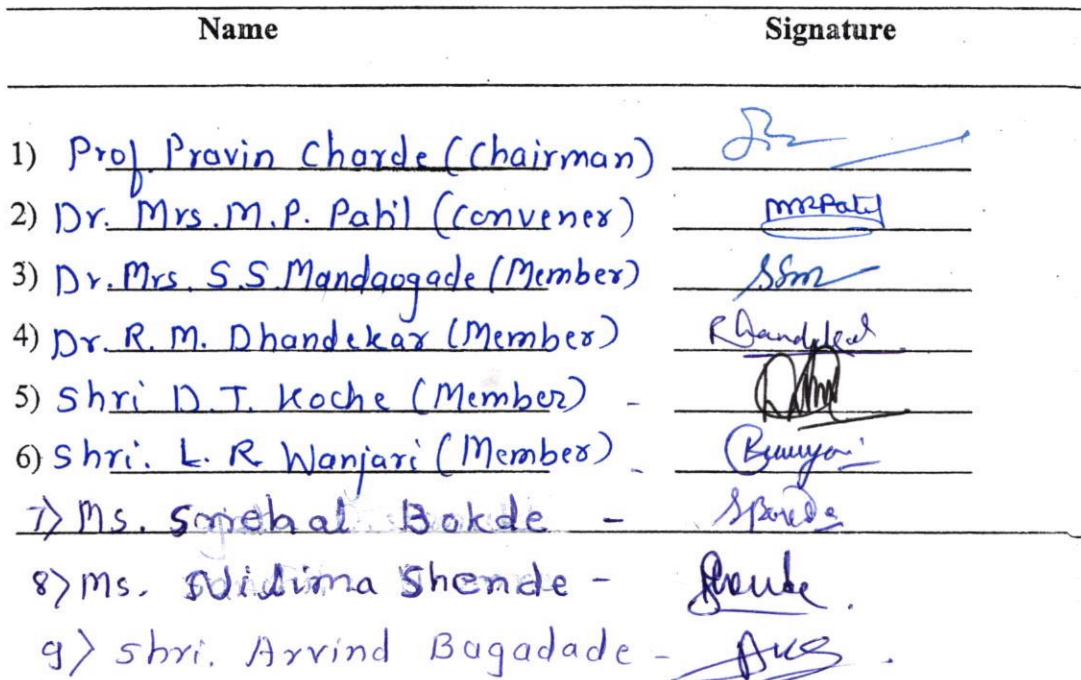 Name Signature
1) Prof. Pravin Charde (Chairman)
2) Dr. Mrs. M. P. Patil (Convener) MRPatil
3) Dr. Mrs. S.S. Mandaogade (Member) SSm
4) Dr. R. M. Dhandekar (Member)
5) Shri D.T. Koche (Member) -
6) Shri. L. R. Wanjari (Member) -
7) Ms. Snehal Bokde -
8) Ms. Shende -
9) Shri. Arvind Bagadade -